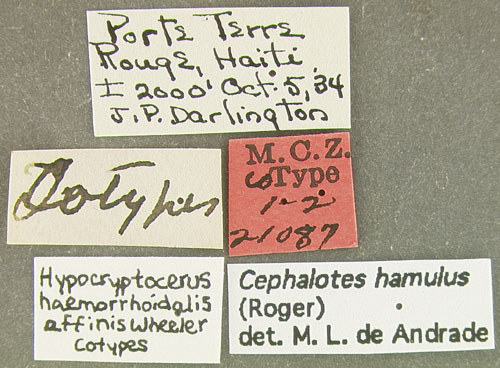 Porte Terre
Rouge, Haiti
± 2000' Oct. 5, 34
J.P. Darlington
Cotypes
M.C.Z.
CoType
1-2
21087
Hypocryptocerus
haemorrhoidalis
affinis Wheeler
Cotypes
Cephalotes hamulus
(Roger)
det. M. L. de Andrade